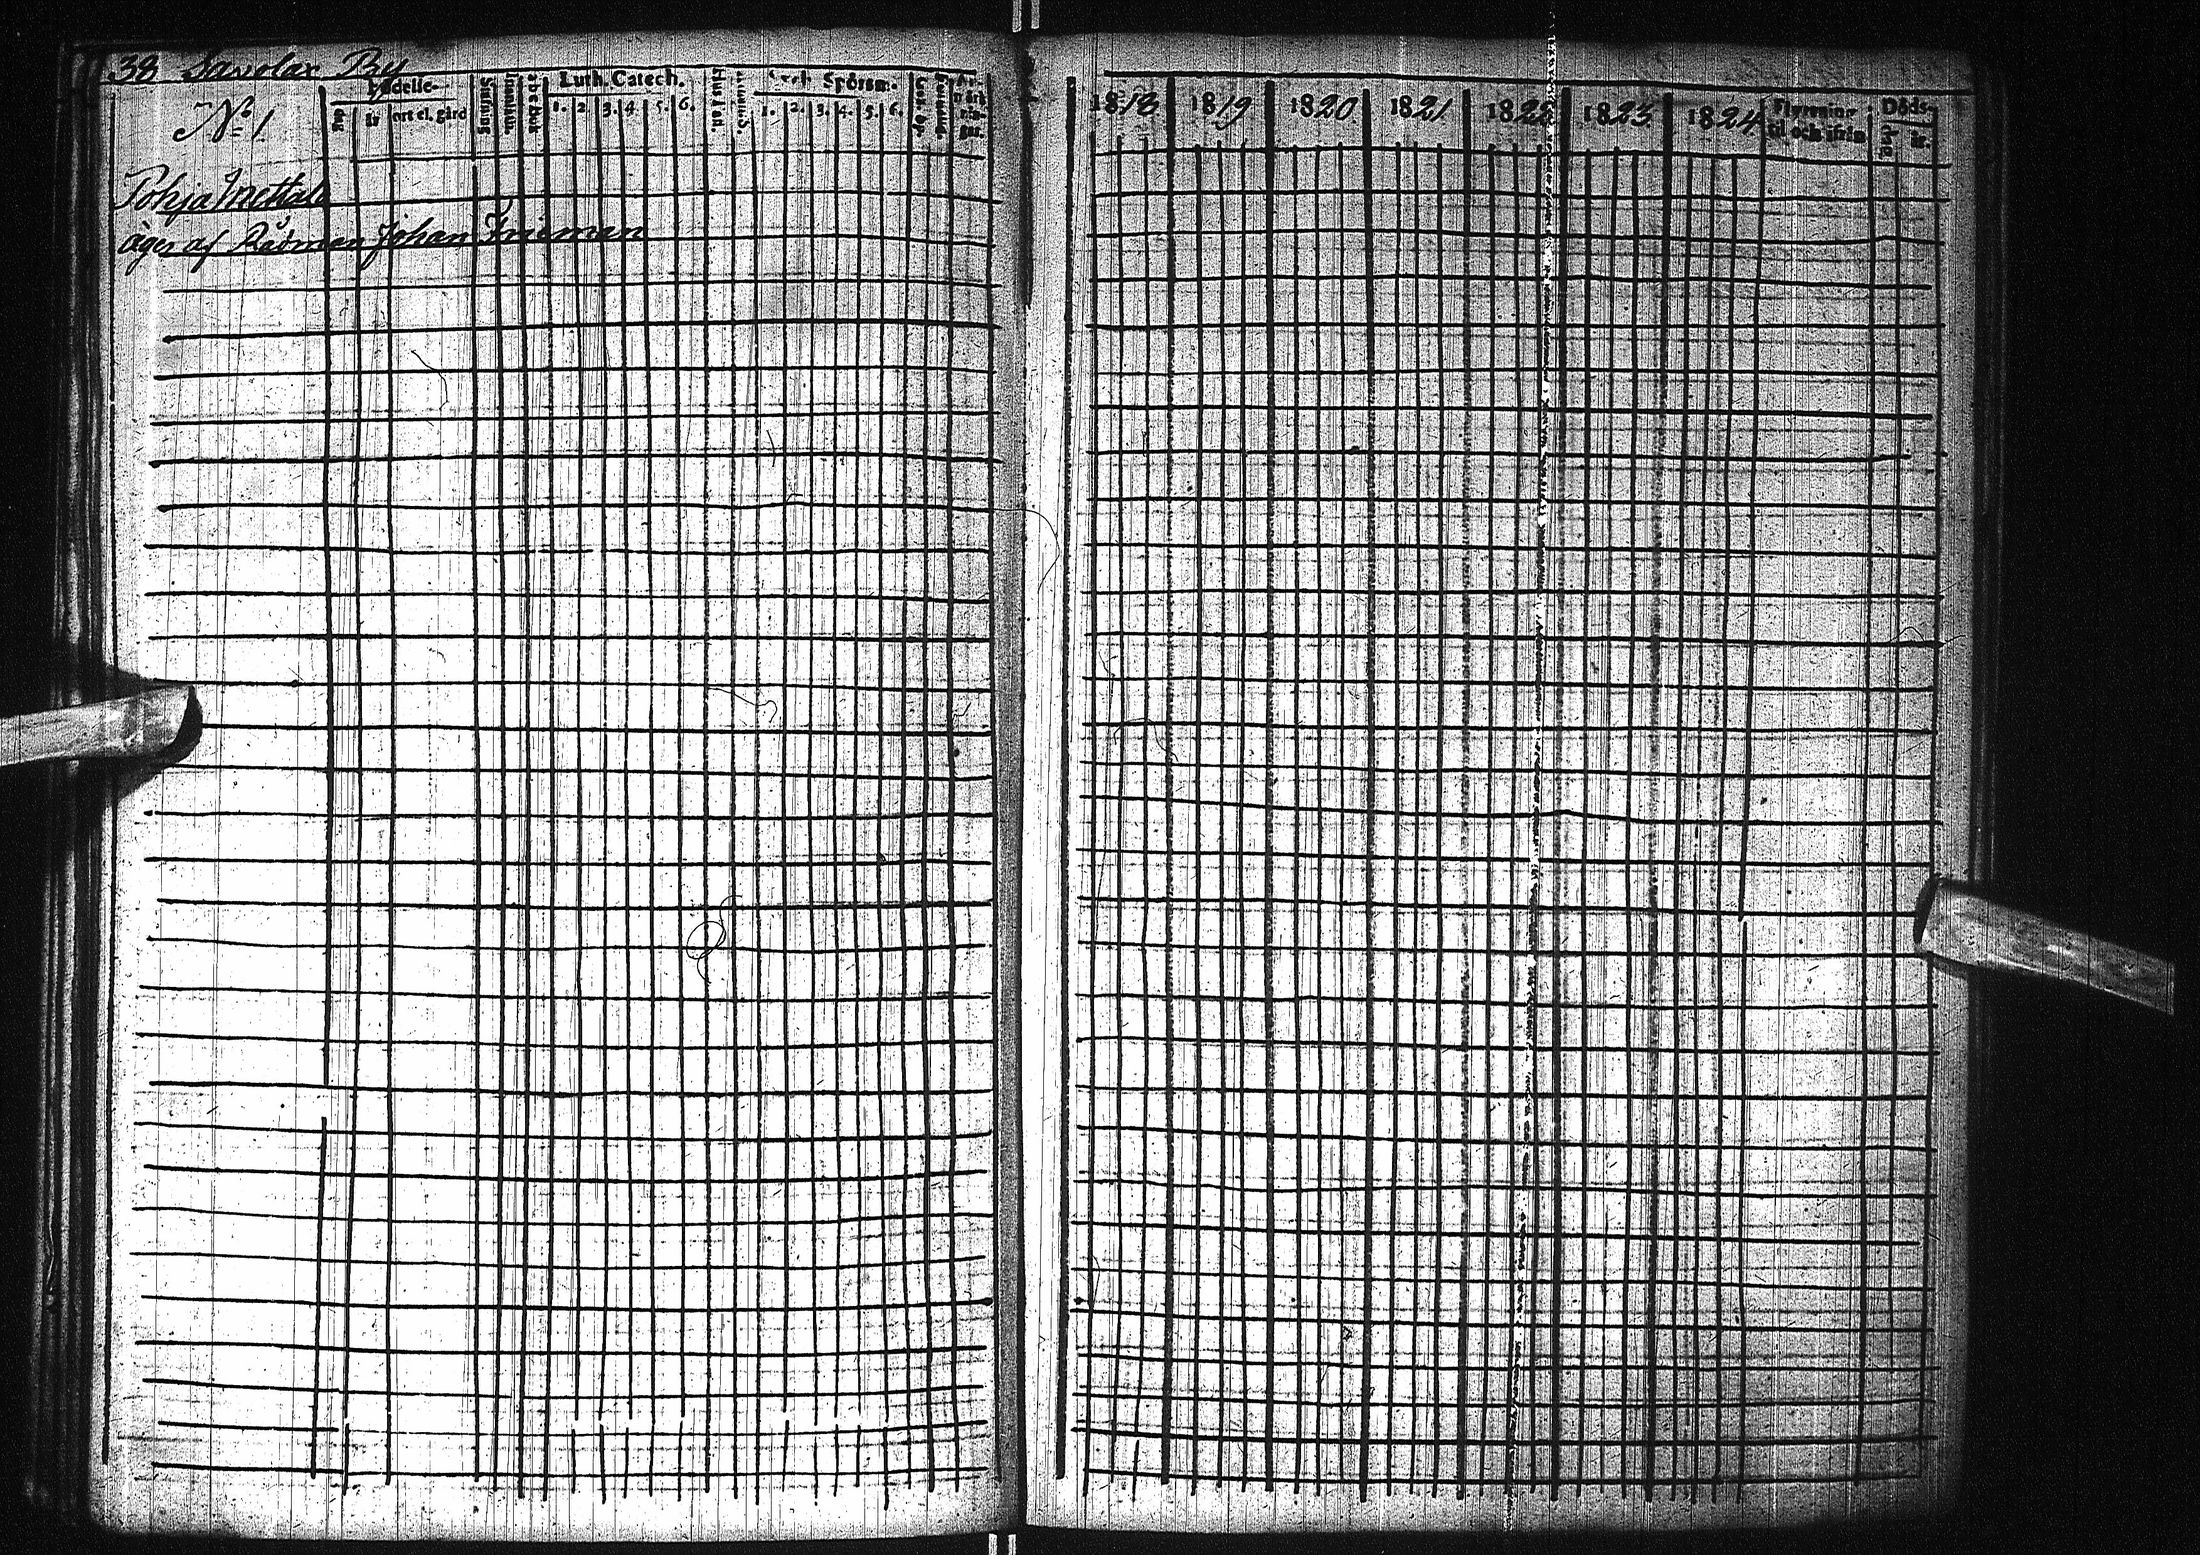 38 Savolax By
Födelse- Luth. Catech. Spörsm.
No 1 dag år ort el. gård Stafning 1. 2 3. 4 5. 6. 1. 2. 3. 4. 5. 6.
Pohja Mettälä
äges af Rådman Johan Frieman
1818 1819 1820 1821 1822 1823 1824 Flyttning Döds-
til och ifrån dag år.